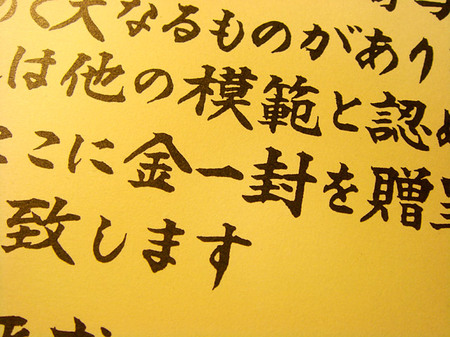 て大なるものがあり
は他の模範と認め
ここに金一封を贈呈
致します